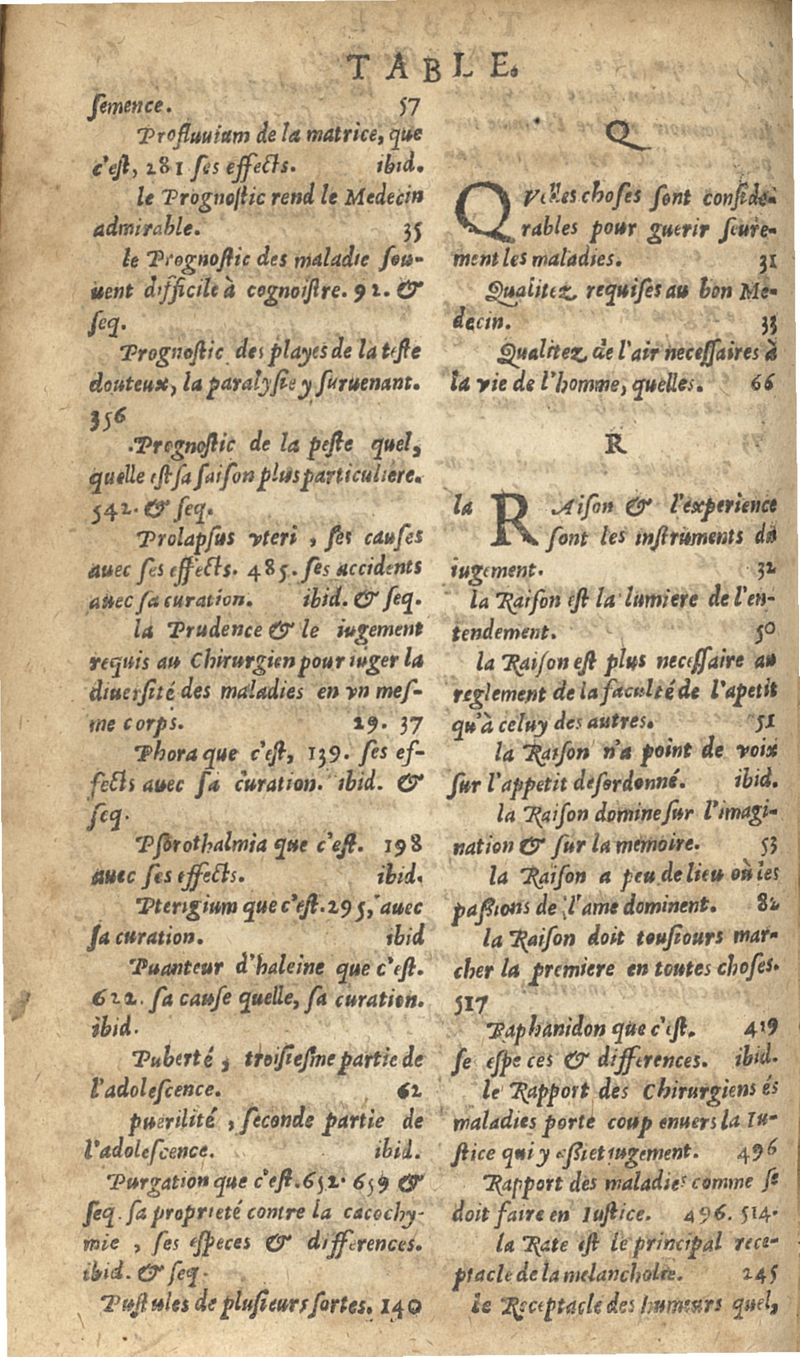 TABLE.
semence. 57
Profluuium de la matrice, que
c'est, 281 ses effects. ibid.
le Prognostic rend le Medecin
admirable. 35
le Prognostic des maladie sou-
uent difficile à cognoistre. 92. &
seq.
Prognostic des playes de la teste
douteux, la paralysie y suruenant.
356
Prognostic de la peste quel,
quelle est sa saison plus particuliere.
542. & seq.
Prolapsus vteri, ses causes
auec ses effects. 485. ses accidents
auec sa curation. ibid. & seq.
la Prudence & le iugement
requis au Chirurgien pour iuger la
diuersité des maladies en vn mes-
me corps. 29. 37
Phora que c'est, 139. ses ef-
fects auec sa curation. ibid. &
seq.
Psorothalmia que c'est. 198
auec ses effects. ibid.
Pterigium que c'est. 295, auec
sa curation. ibid
Puanteur d'haleine que c'est.
622. sa cause quelle, sa curation.
ibid.
Puberté, troisiesme partie de
l'adolescence. 62
puerilité, seconde partie de
l'adolescence. ibid.
Purgation que c'est. 652. 659 &
seq. sa proprieté contre la cacochy-
mie, ses especes & differences.
ibid. & seq.
Pustules de plusieurs sortes. 140
Q
QVelles choses sont conside-
rables pour guerir seure-
ment les maladies. 31
Qualitez requises au bon Me-
decin. 33
Qualitez de l'air necessaires à
la vie de l'homme, quelles. 66
R
la RAison & l'experience
sont les instruments du
iugement. 32
la Raison est la lumiere de l'en-
tendement. 50
la Raison est plus necessaire au
reglement de la faculté de l'apetit
qu'à celuy des autres. 51
la Raison n'a point de voix
sur l'appetit desordonné. ibid.
la Raison domine sur l'imagi-
nation & sur la memoire. 53
la Raison a peu de lieu où les
passions de l'ame dominent. 82
la Raison doit tousiours mar-
cher la premiere en toutes choses.
517
Raphanidon que c'est. 419
se espe ces & differences. ibid.
le Rapport des Chirurgiens és
maladies porte coup enuers la Iu-
stice qui y assiet iugement. 496
Rapport des maladies comme se
doit faire en Iustice. 496. 514.
la Rate est le principal rece-
ptacle de la melancholie. 245
le Receptacle des humeurs quel,